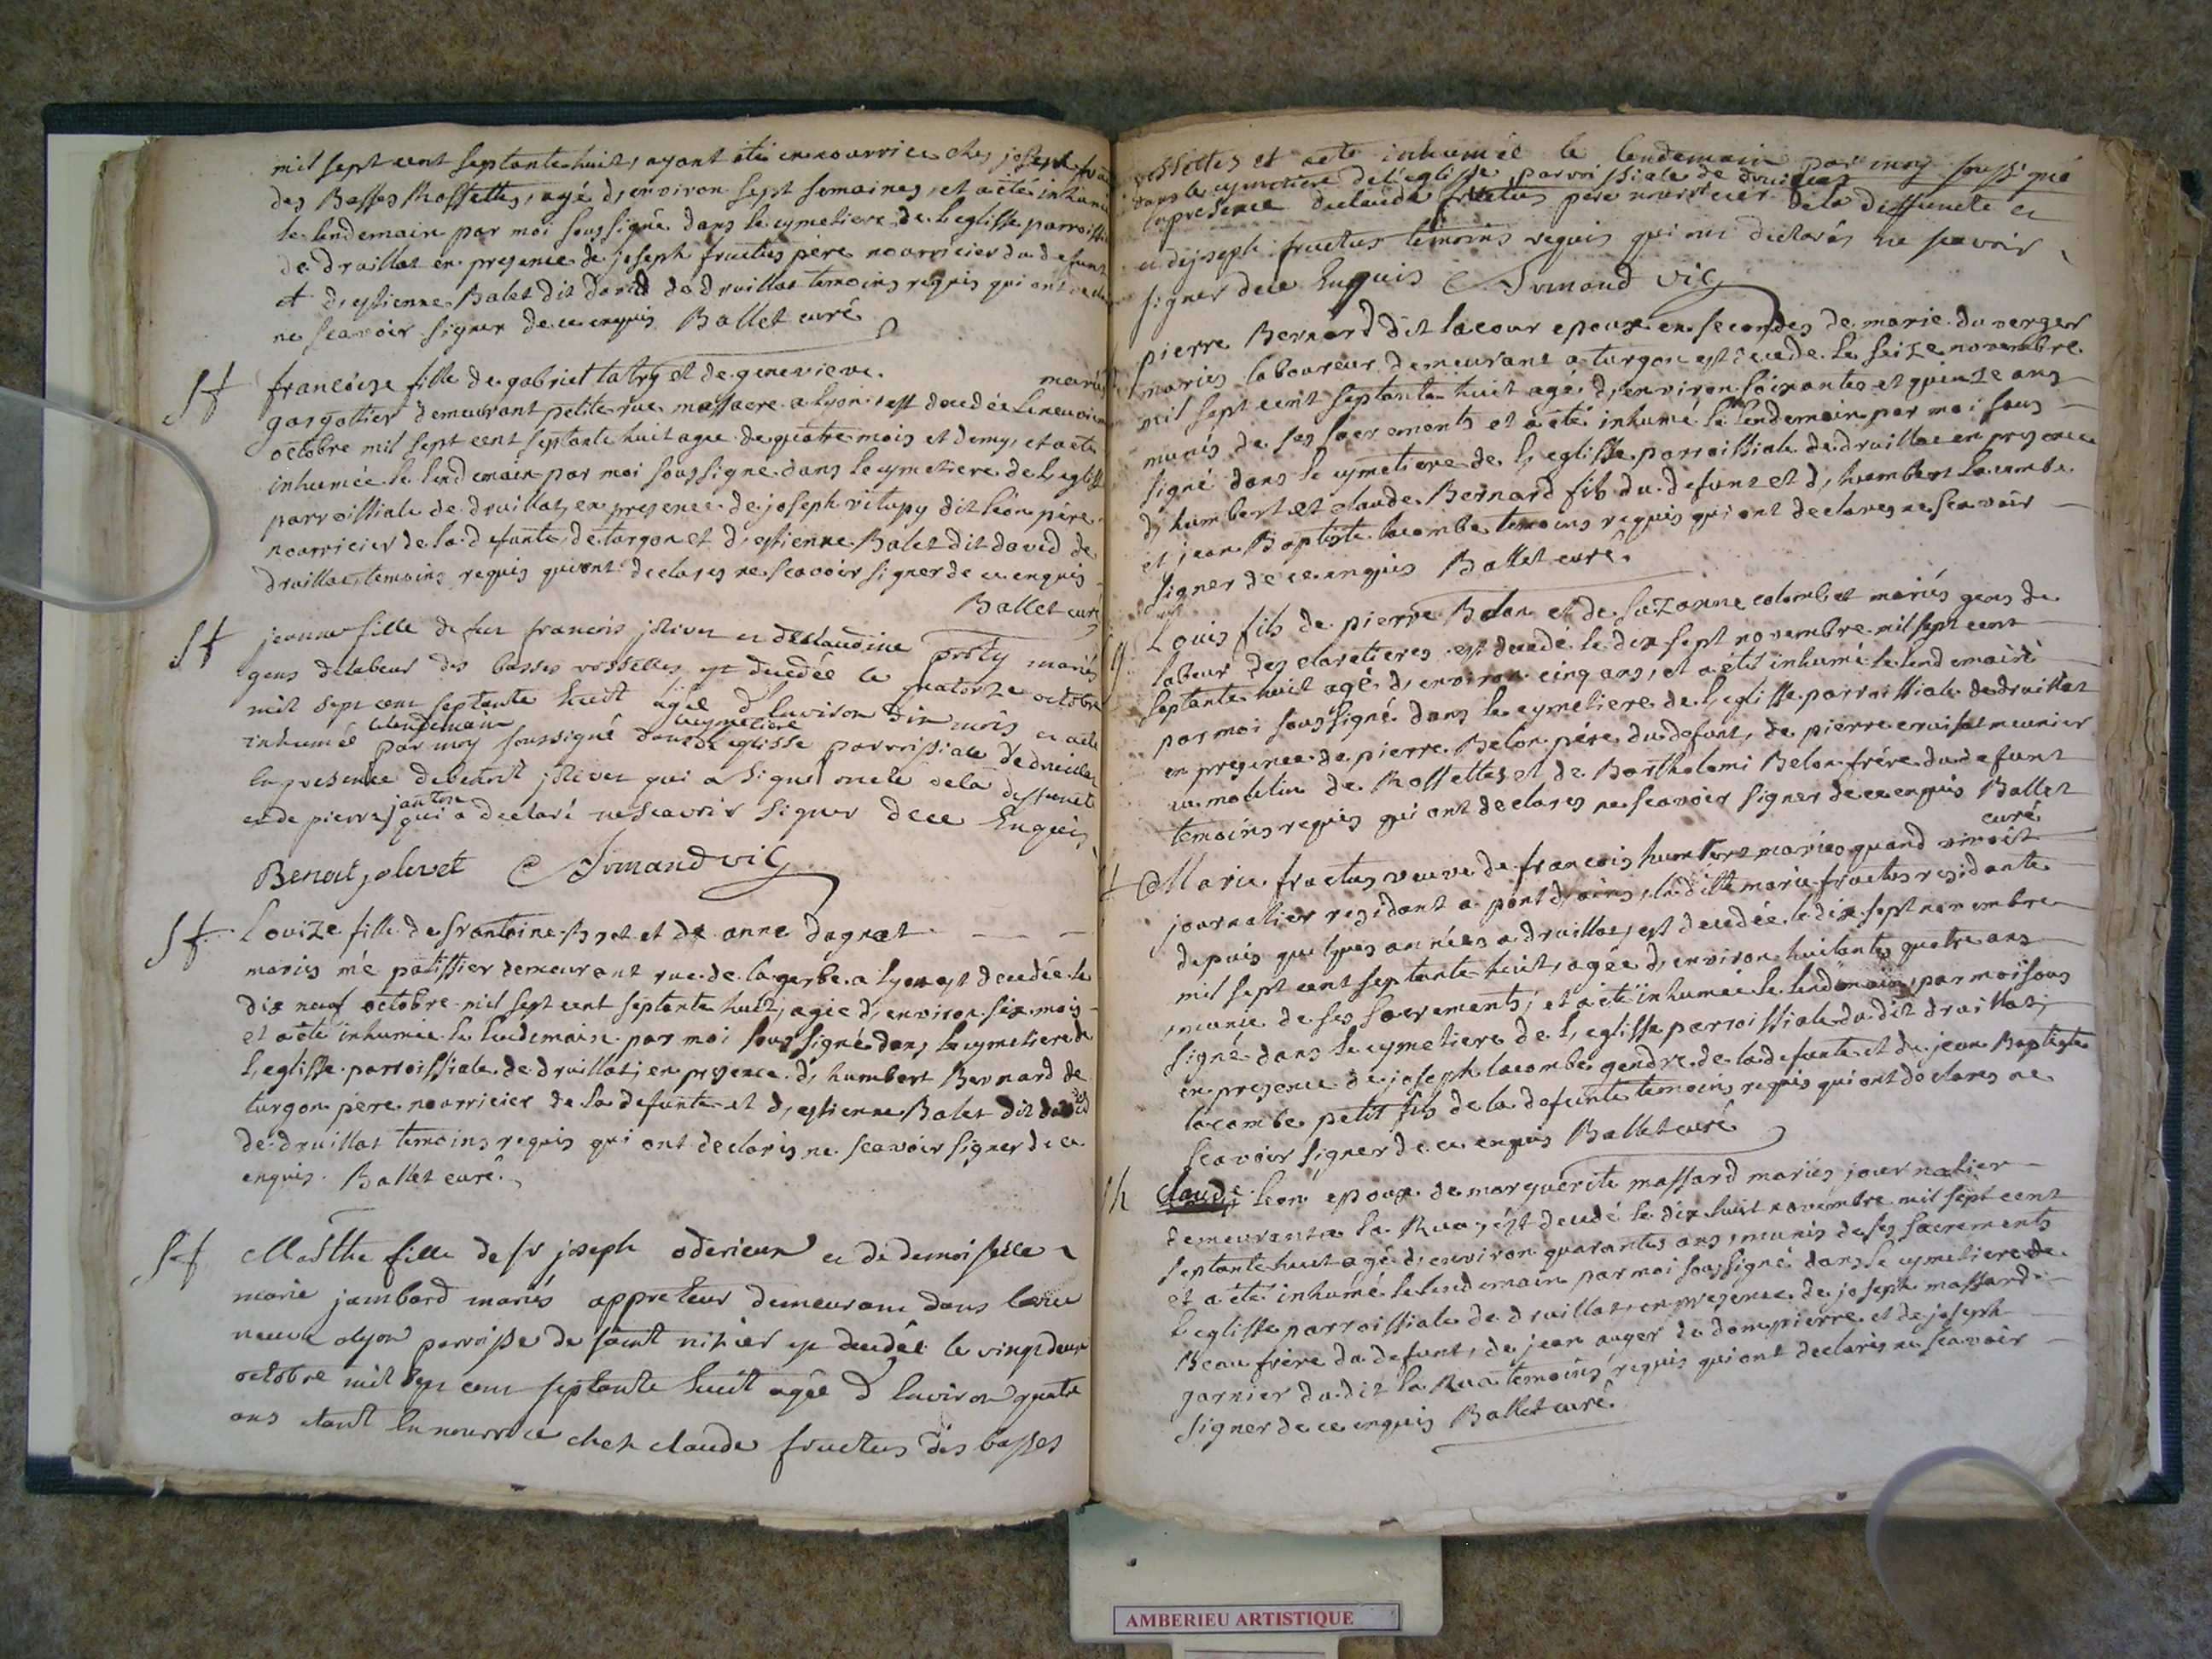 mil sept cent septante huit, ayant été en nourrice chez joseph
des Basses Rossettes, agé d'environ sept semaines, et a eté inhumé
le lendemain par moi soussigné dans le cymetiere de l'eglisse parroissi
de druillat en presence de joseph fructus pere nourricier du defunt
et d'estienne Balet dit david de druillat temoins requis qui ont
ne scavoir signer de ce enquis Ballet curé
françoise fille de gabriel latry et de genevieve mariés
gargottier demeurant petite rue massacre a Lyon est decedée le
octobre mil sept cent septante huit agee de quatre mois et demy, et a eté
inhumée le lendemain par moi soussigne dans le cymetiere de l'egliss
parroissiale de druillat, en presence de joseph vitupy dit léon pére
nourricier de la defunte, de turgon et d'estienne Balet dit david de
druillat temoins requis qui ont declarés ne scavoir signer de ce enquis
Ballet curé
jeanne fille de feu francois jolivet et declaudine mariés
gens delabeur des basses vossettes est decedée le quatorze octobre
mil sept cent septante huit agée d'environ dix mois et a eté
inhumée lendemain par moy soussigné dans le cymetiere l'eglisse parroissiale de druillat
en presence de benoit jolivet qui a signé oncle dela deffuncte
et de pierre janton qui a declaré ne scavoir signer dece enquis
Benoit jolivet Armand vic
Louize fille de sr antoine et de anne dagnat
mariés me patissier demeurant rue de la gerbe a lyon est decedée le
dix neuf octobre mil sept cent septante huit, agée d'environ six mois
et a eté inhumee le lendemain par moi soussigné dans le cymetiere de
l'eglisse parroissiale de druillat, en presence d'humbert Bernard de
turgon pere nourricier de la defunte et d'estienne Balet dit david
de druillat temoins requis qui ont declarés ne scavoir signer de ce
enquis. Ballet curé.
Marthe fille de sr joseph oderieux et de demoiselle
marie jambard mariés appreteur demeurant dans la rue
neuve a lyon parroisse de saint nizier est decedée le vingt deux
octobre mil sept cent septante huit agée d'environ quatre
ans etant en nourrice chez claude fructus des basses
vossettes et a eté inhumée le lendemain par moy soussigné
dans le cymetiere de l'eglisse parroissiale de druillat
en presence declaude fructus pere nourricier dela deffuncte et
et dejoseph fructus temoins requis qui ont declarés ne scavoir
signer dece enquis Armand vic
pierre Bernard dit lacour epoux en secondes de marie du verger
mariés laboureur demeurant a turgon est decedé le seize novembre
mil sept cent septante huit agé d'environ soixantes et quinze ans
munis de ses sacrements et a eté inhumé le lendemain par moi sous
signé dans le cymetiere de l'eglisse parroissiale de druillat en presence
d'humbert et claude Bernard fils du defunt et d'humbert lacombe
et jean Baptiste lacombe temoins requis qui ont declares ne scavoir
signer de ce enquis Ballet curé.
Louis fils de pierre Belon et de suzanne colombet mariés gens de
labeur des claretieres est decedé le dix sept novembre mil sept cent
septante huit agé d'environ cinq ans, et a eté inhumé le lendemain
par moi soussigné dans le cymetiere de l'eglisse parroissiale de druillat
en presence de pierre Belon pére du defunt, de pierre meunier
au moulin de Rossettes et de Bartholomi Belon frére du defunt
temoins requis qui ont declares ne scavoir signer de ce enquis Ballet
curé
Marie fructus veuve de francois humbert mariés quand vivoit
journalier residant a pont d'ains, la ditte marie fructus residante
depuis quelques années a druillat, est decedée le dix sept novembre
mil sept cent septante huit, agee d'environ huitantes quatre ans
munie de ses sacrements, et a eté inhumée le lendemain, par moi sous
signé dans le cymetiere de l'eglisse parroissiale du dit druillat,
en presence de joseph lacombe gendre de la defunte et de jean Baptiste
lacombe petit fils de la defunte temoins requis qui ont declares ne
scavoir signer de ce enquis Ballet curé
claude leon epoux de marguerite massard mariés journalier
demeurant a la Rua, est decedé le dix huit novembre mil sept cent
septante huit agé d'environ quarantes ans, munis de ses sacrements
et a eté inhumé le lendemain par moi soussigné dans le cymetiere de
l'eglisse parroissiale de druillat, en presence de joseph massard
Beau frère du defunt, de jean auger de dompierre et de joseph
garnier du dit la Rua temoins requis qui ont declarés ne scavoir
signer de ce enquis Ballet curé.
AMBERIEU ARTISTIQUE